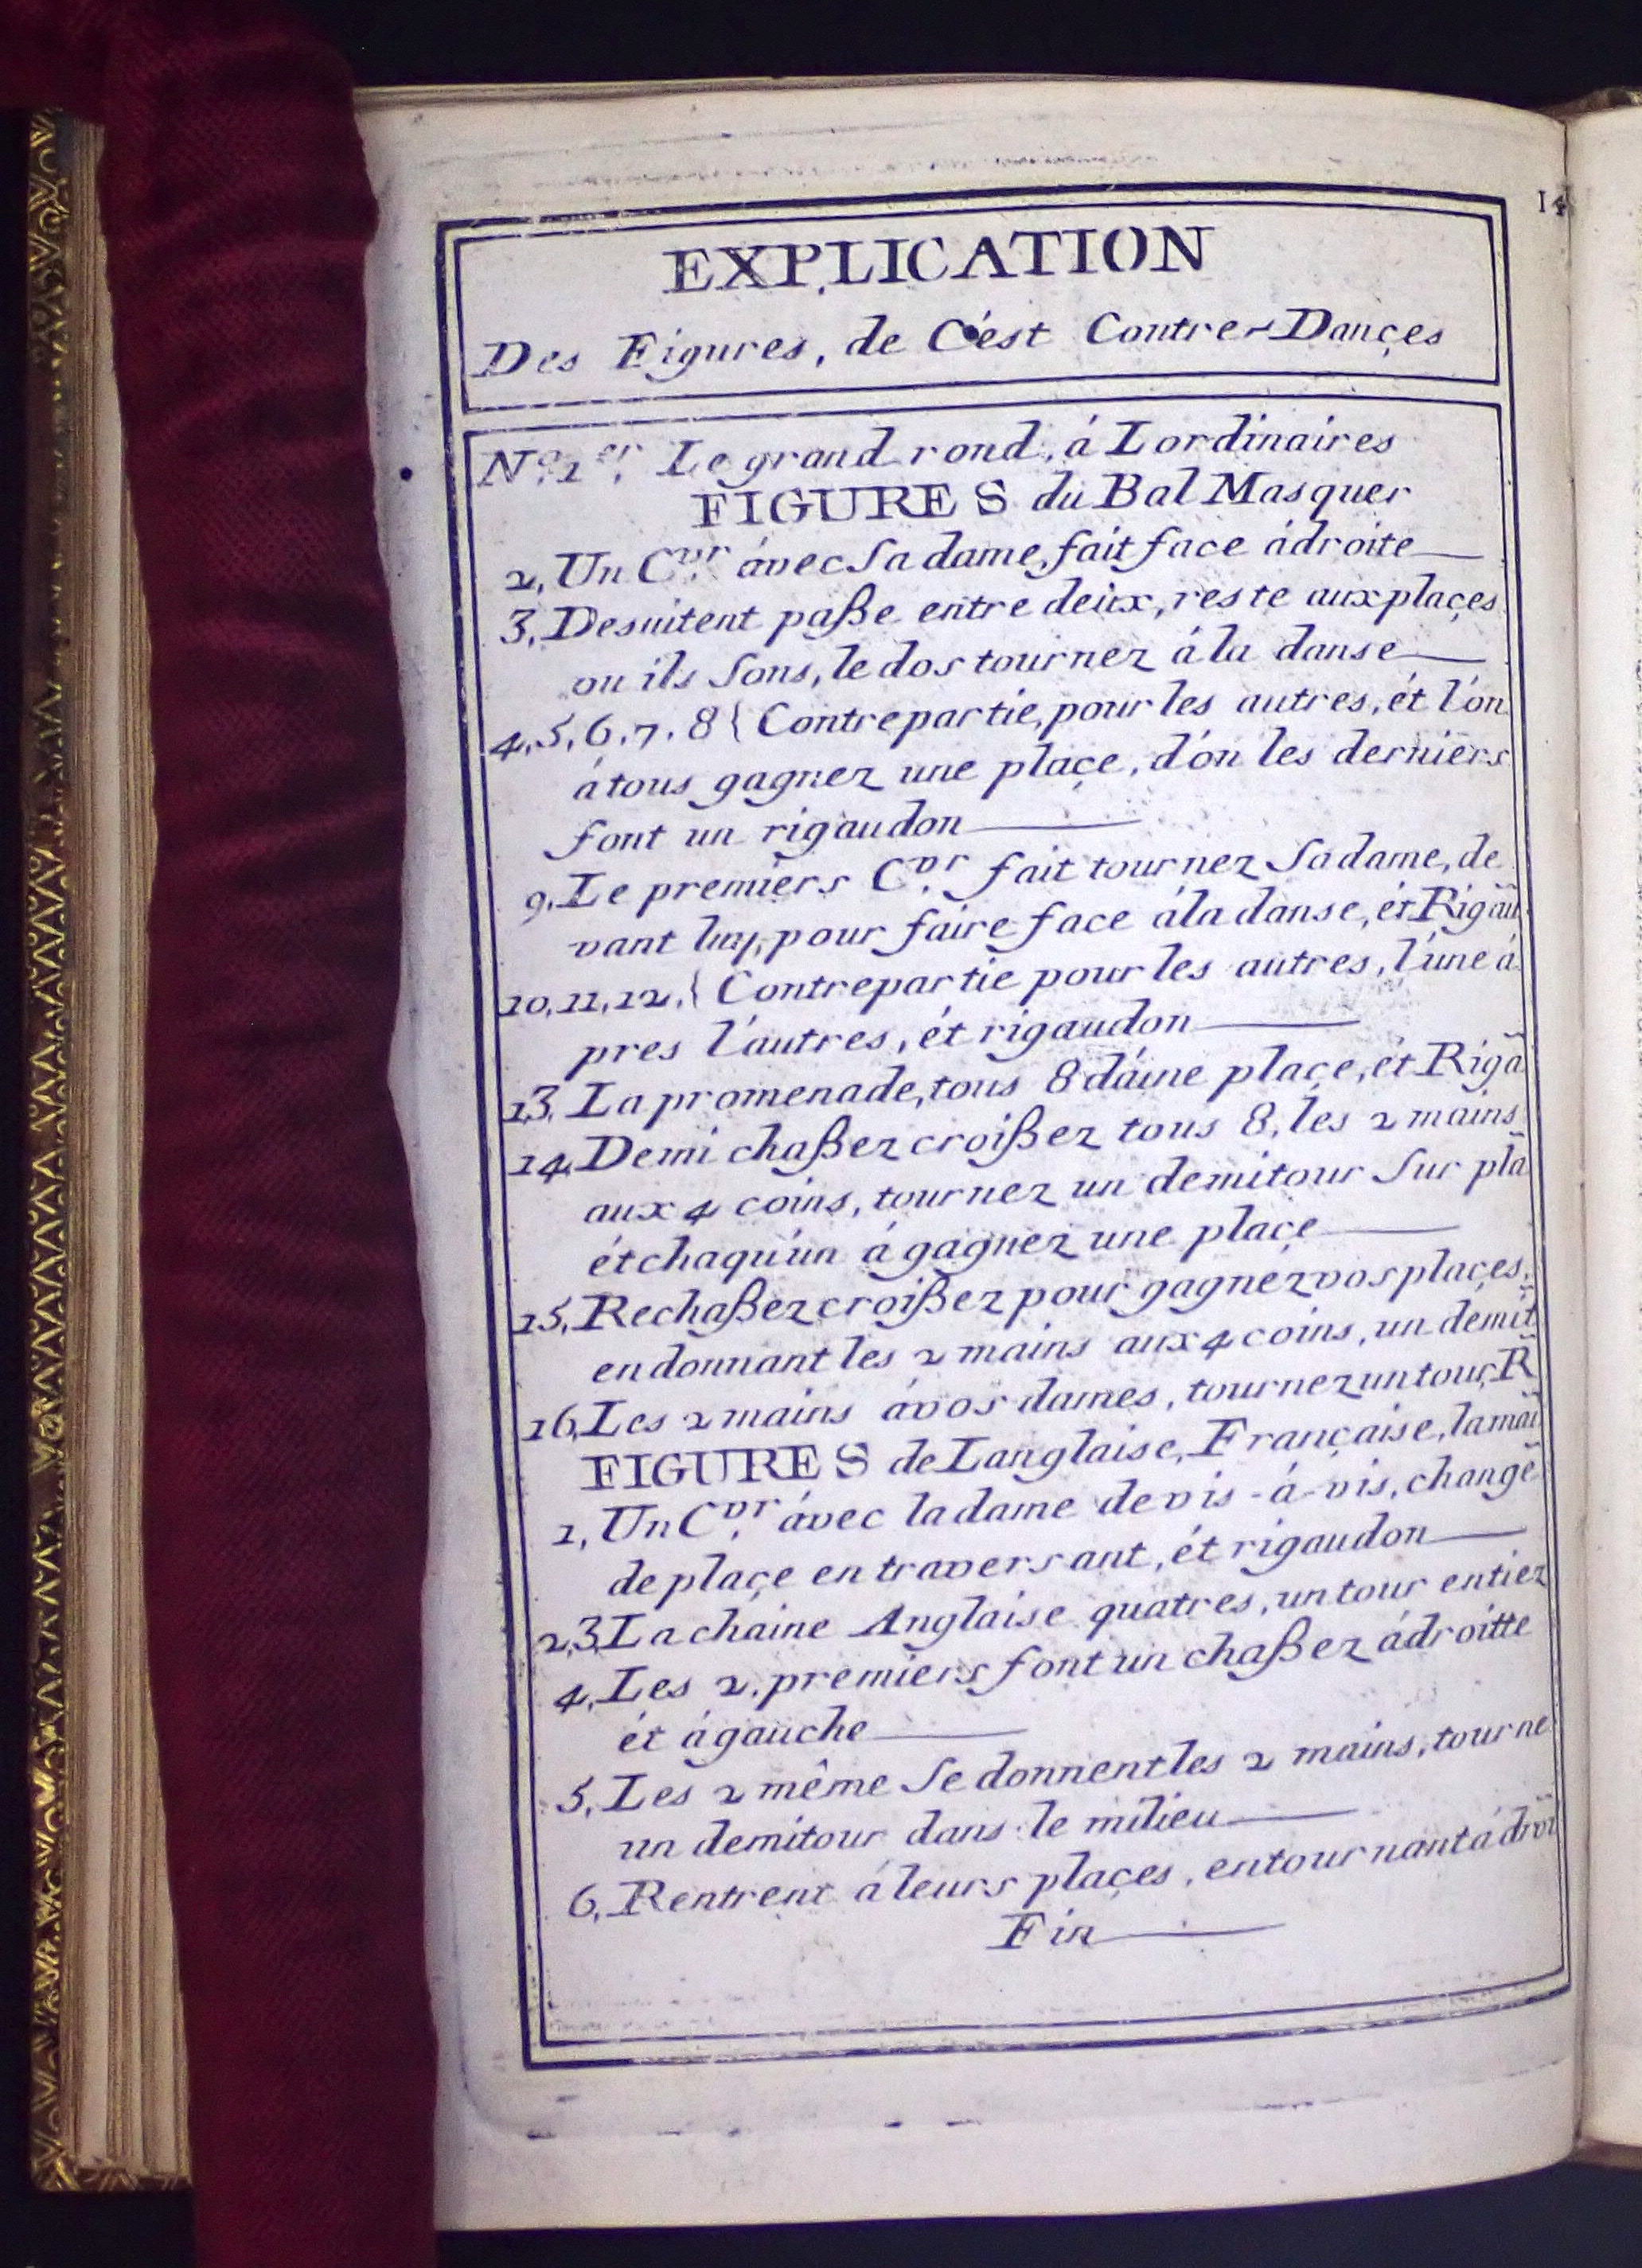 14
EXPLICATION
Des Figures, de C'ést Contre-Dançes
No. 1er. Le grand rond, á Lordinaires
FIGURES du Bal Masquer
2, Un Cvr. ávec Sa dame, fait face ádroite
3, Desuitent paße entre deux, reste aux plaçes
ou ils Sons, le dos tournez á la danse
4, 5, 6, 7, 8 { Contrepartie, pour les autres, ét l'on
á tous gagnez une plaçe, d'on les derniers
font un rigaudon
9. Le premiers Cvr. fait tournez Sa dame, de
vant luy, pour faire face á la danse, ét Rigau
10, 11, 12, { Contrepartie pour les autres, l'une á
pres l'autres, ét rigaudon
13. La promenade, tous 8 d'áune plaçe, ét Riga
14, Demi chaßez croißez tous 8, les 2 mains
aux 4 coins, tournez un demitour Sur pla
ét chaqu'un á gagnez une plaçe
15, Rechaßez croißez pour gagnez vos plaçes,
en donnant les 2 mains aux 4 coins, un demit
16, Les 2 mains á vos dames, tournez un tour, R
FIGURES de Langlaise, Française, la mai
1, Un Cvr. ávec la dame de vis-á-vis, change
de plaçe en traversant, ét rigaudon
2, 3, La chaine Anglaise quatres, un tour entiez
4, Les 2. premiers font un chaßez ádroitte
ét ágauche
5, Les 2 même Se donnent les 2 mains, tourne
un demitour dans le milieu
6, Rentrent á leurs plaçes, en tournant á droi
Fin